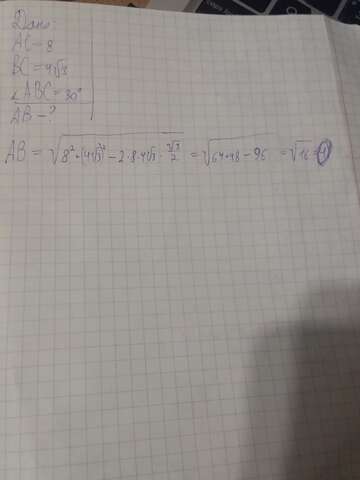 Дано:
AC = 8
BC = 4√3
∠ABC = 30°
AB - ?
AB = √(8² + (4√3)² - 2·8·4√3·√3/2) = √(64+48-96) = √16 = 4